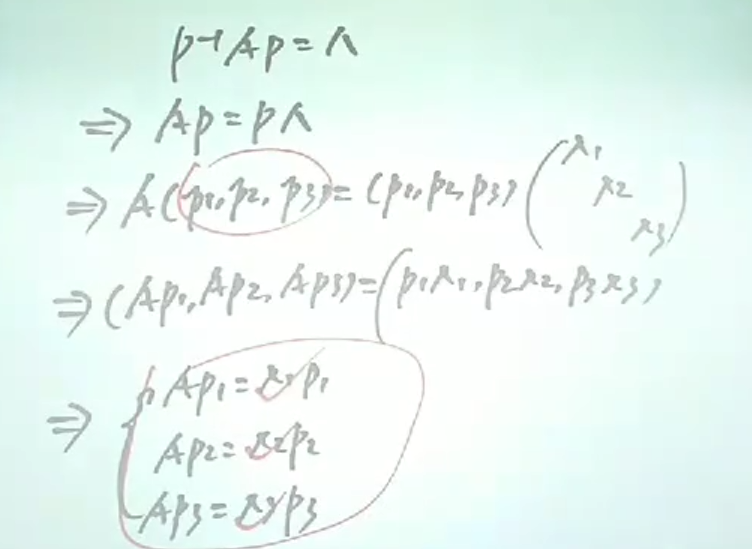 P⁻¹AP=Λ
⇒ AP=PΛ
⇒ A(p₁,p₂,p₃)=(p₁,p₂,p₃)(λ₁ λ₂ λ₃)
⇒ (Ap₁,Ap₂,Ap₃)=(p₁λ₁,p₂λ₂,p₃λ₃)
⇒ { Ap₁=λ₁p₁
Ap₂=λ₂p₂
Ap₃=λ₃p₃